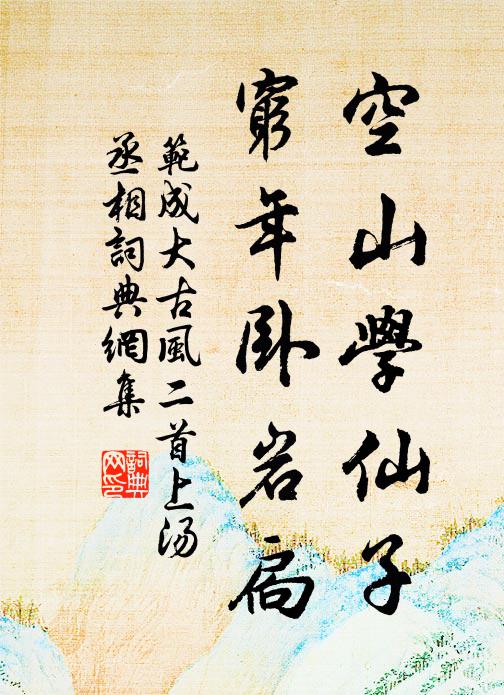 空山學仙子
窮年卧岩扃
範成大古風二首上湯
丞相詞典網集
詞典
网印